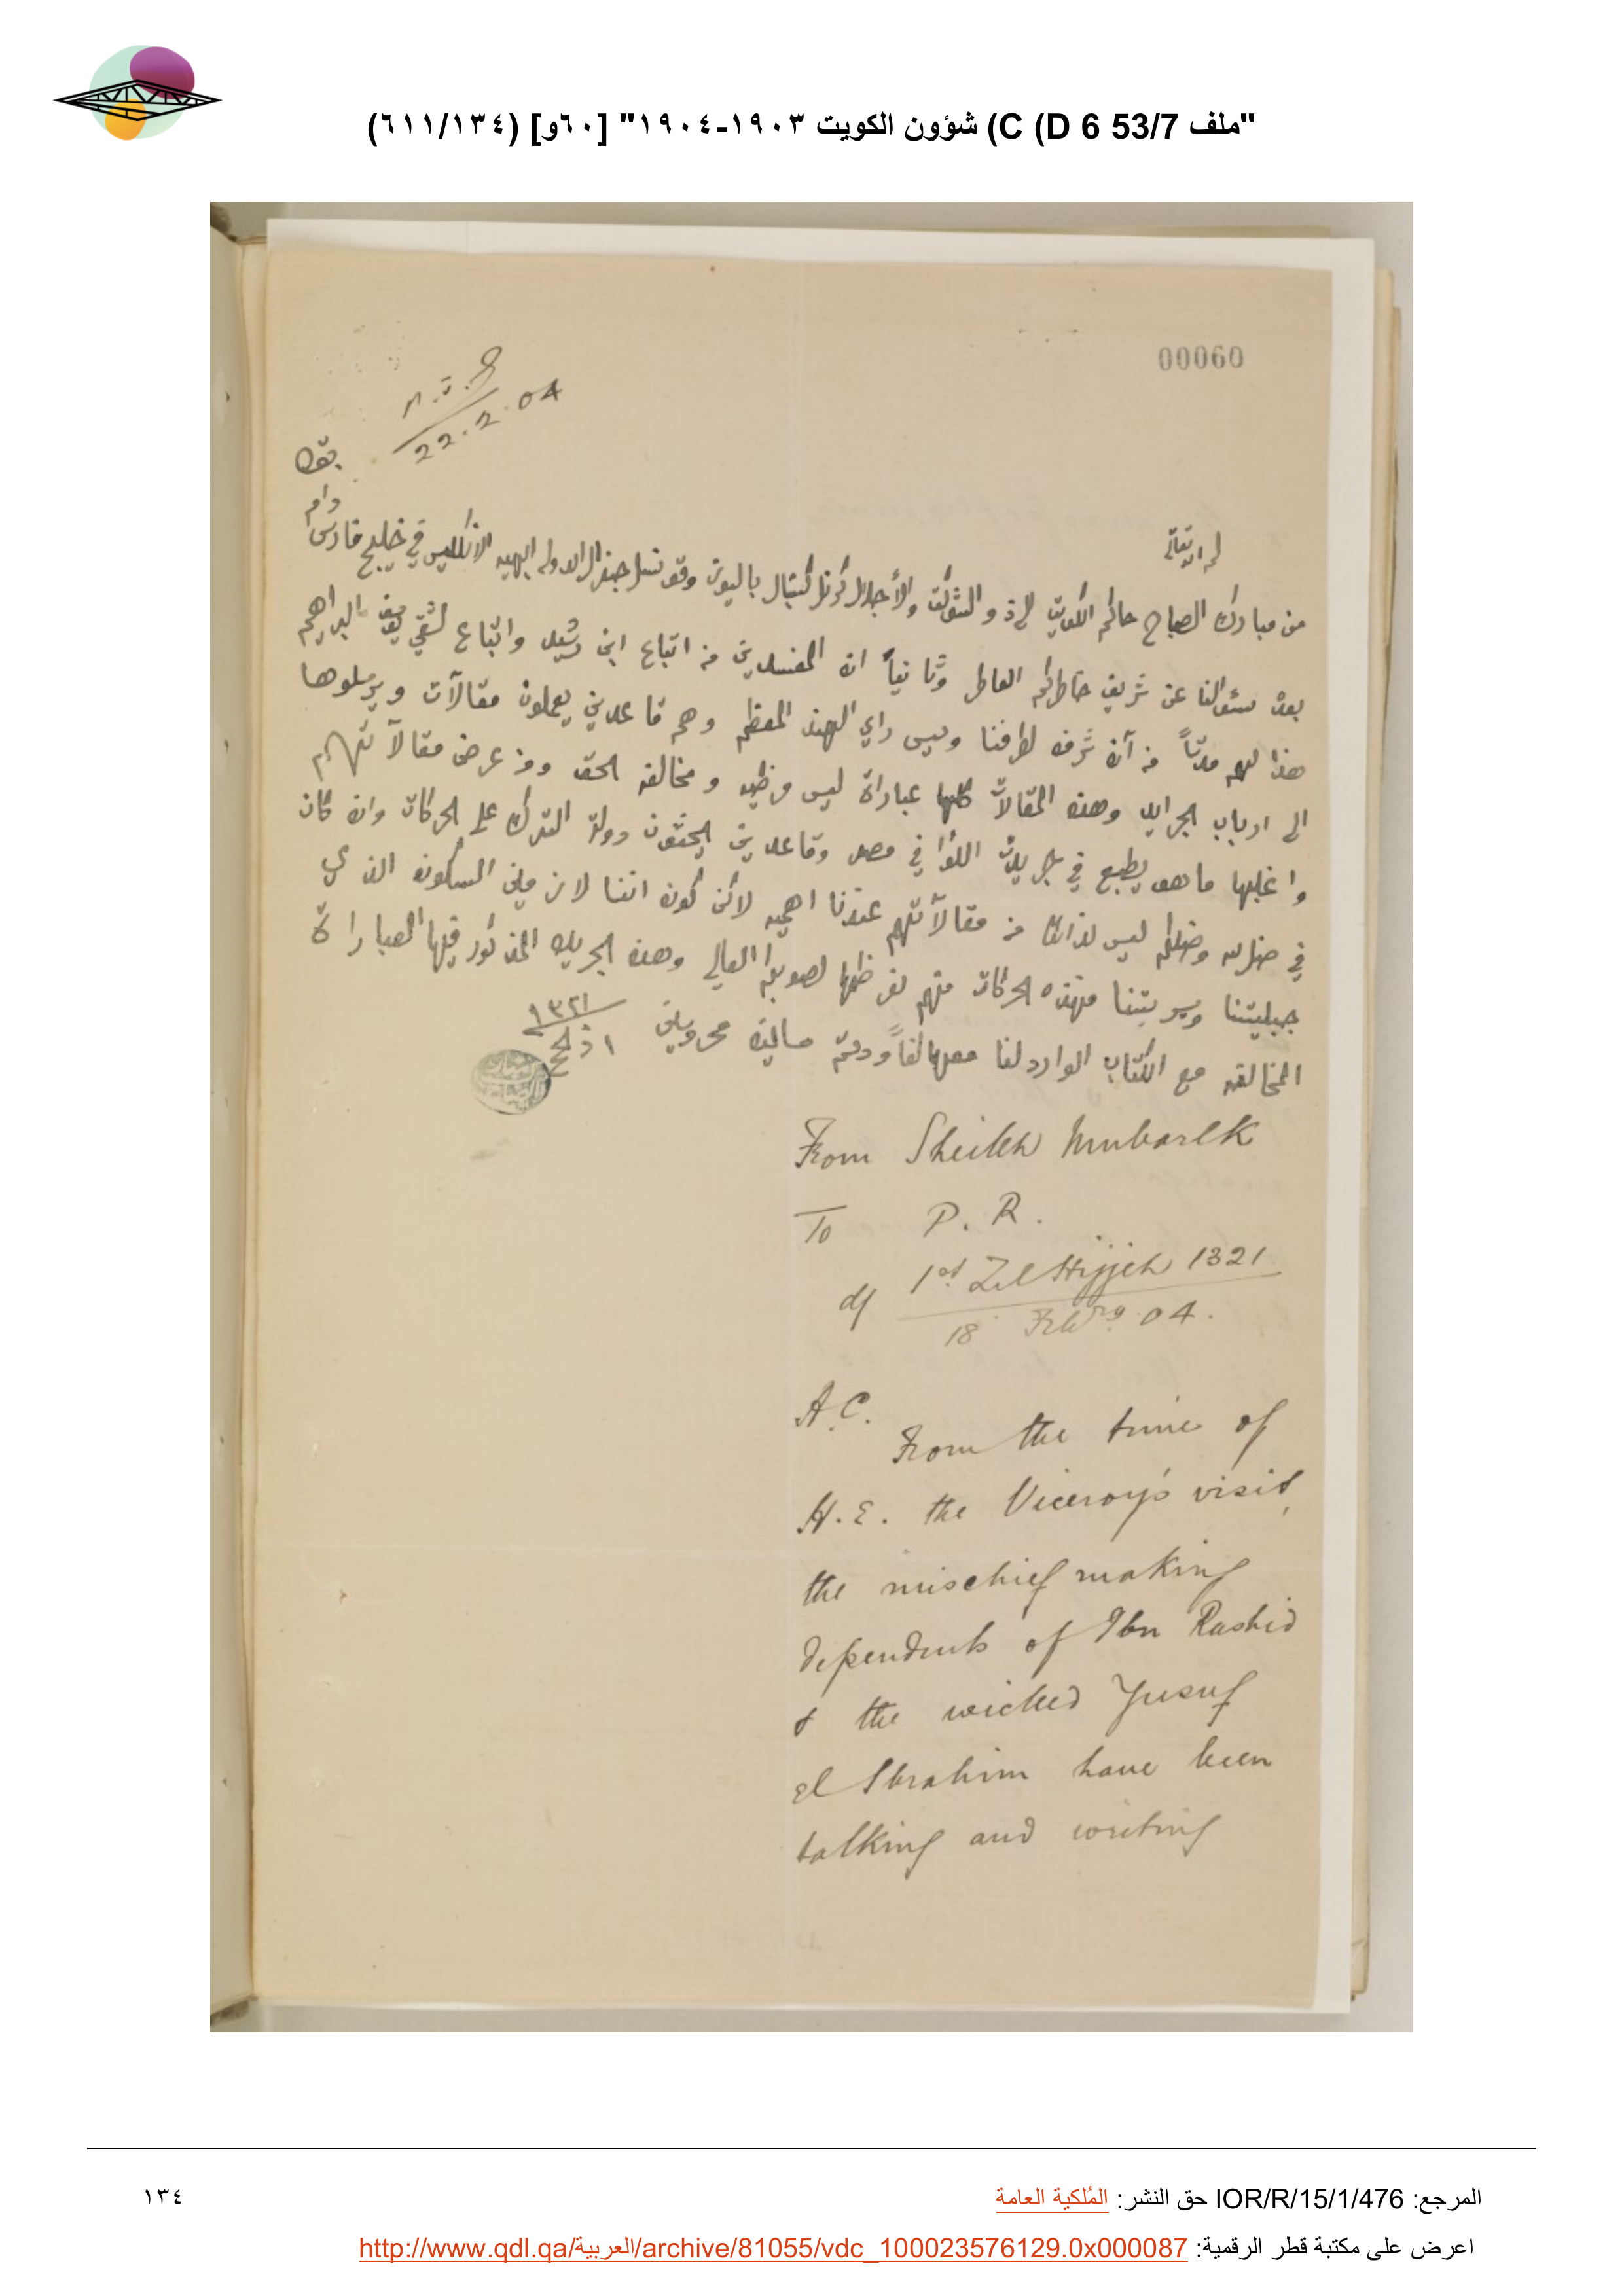 "ملف 53/7 C (D 6) شؤون الكويت ١٩٠٣-١٩٠٤" [٦٠و] (٦١١/١٣٤)
00060
22.2.04
بقاه
دام
من مبارك الصباح حاكم الكويت الى ذو الشوكت والأجلال كرنل كنبال باليوز وقونسل جنرال الدوله البهيه الانكليس في خليج فارس
بعد سئوالنا عن شريف خاطركم العاطر وثانياً ان المفسدين من اتباع ابن رشيد واتباع الشقي يوسف البراهيم
هذا لهم مدتاً من آن شرف لطرفنا ويس راي الهند المعظم وهم قاعدين يعملون مقالات ويرسلوها
الى ارباب الجرايد وهذه المقالات كلها عباراة ليس مرضيه ومخالفه الحق ومن عرض مقالآتهم
واغلبها ما هو يطبع في جريدت اللوا في مصر وقاعدين يحثون دولة الترك على الحركات وان كان
في فضل الله وفضلكم ليس لذالك من مقالآتهم عندنا اهميه لاكن كون اننا لازمين السكون الذي
جبليتنا ويريتنا فهذه الحركات منهم نعرضها لصوبكم العالي وهذه الجريده المذكور فيها العباراة
المخالفه مع الكتاب الوارد لنا معها لفاً ودمتم سالمين محروسين ١ ذلحج ١٣٢١
From Sheikh Mubarak
To P. R.
d/ 1st Zil Hijjeh 1321
18 Febry 04.
A.C.
From the time of
H.E. the Viceroy's visit,
the mischief making
dependents of Ibn Rashid
& the wicked Yusuf
el Ibrahim have been
talking and writing
المرجع: IOR/R/15/1/476 حق النشر: المُلكية العامة
١٣٤
اعرض على مكتبة قطر الرقمية: http://www.qdl.qa/العربية/archive/81055/vdc_100023576129.0x000087